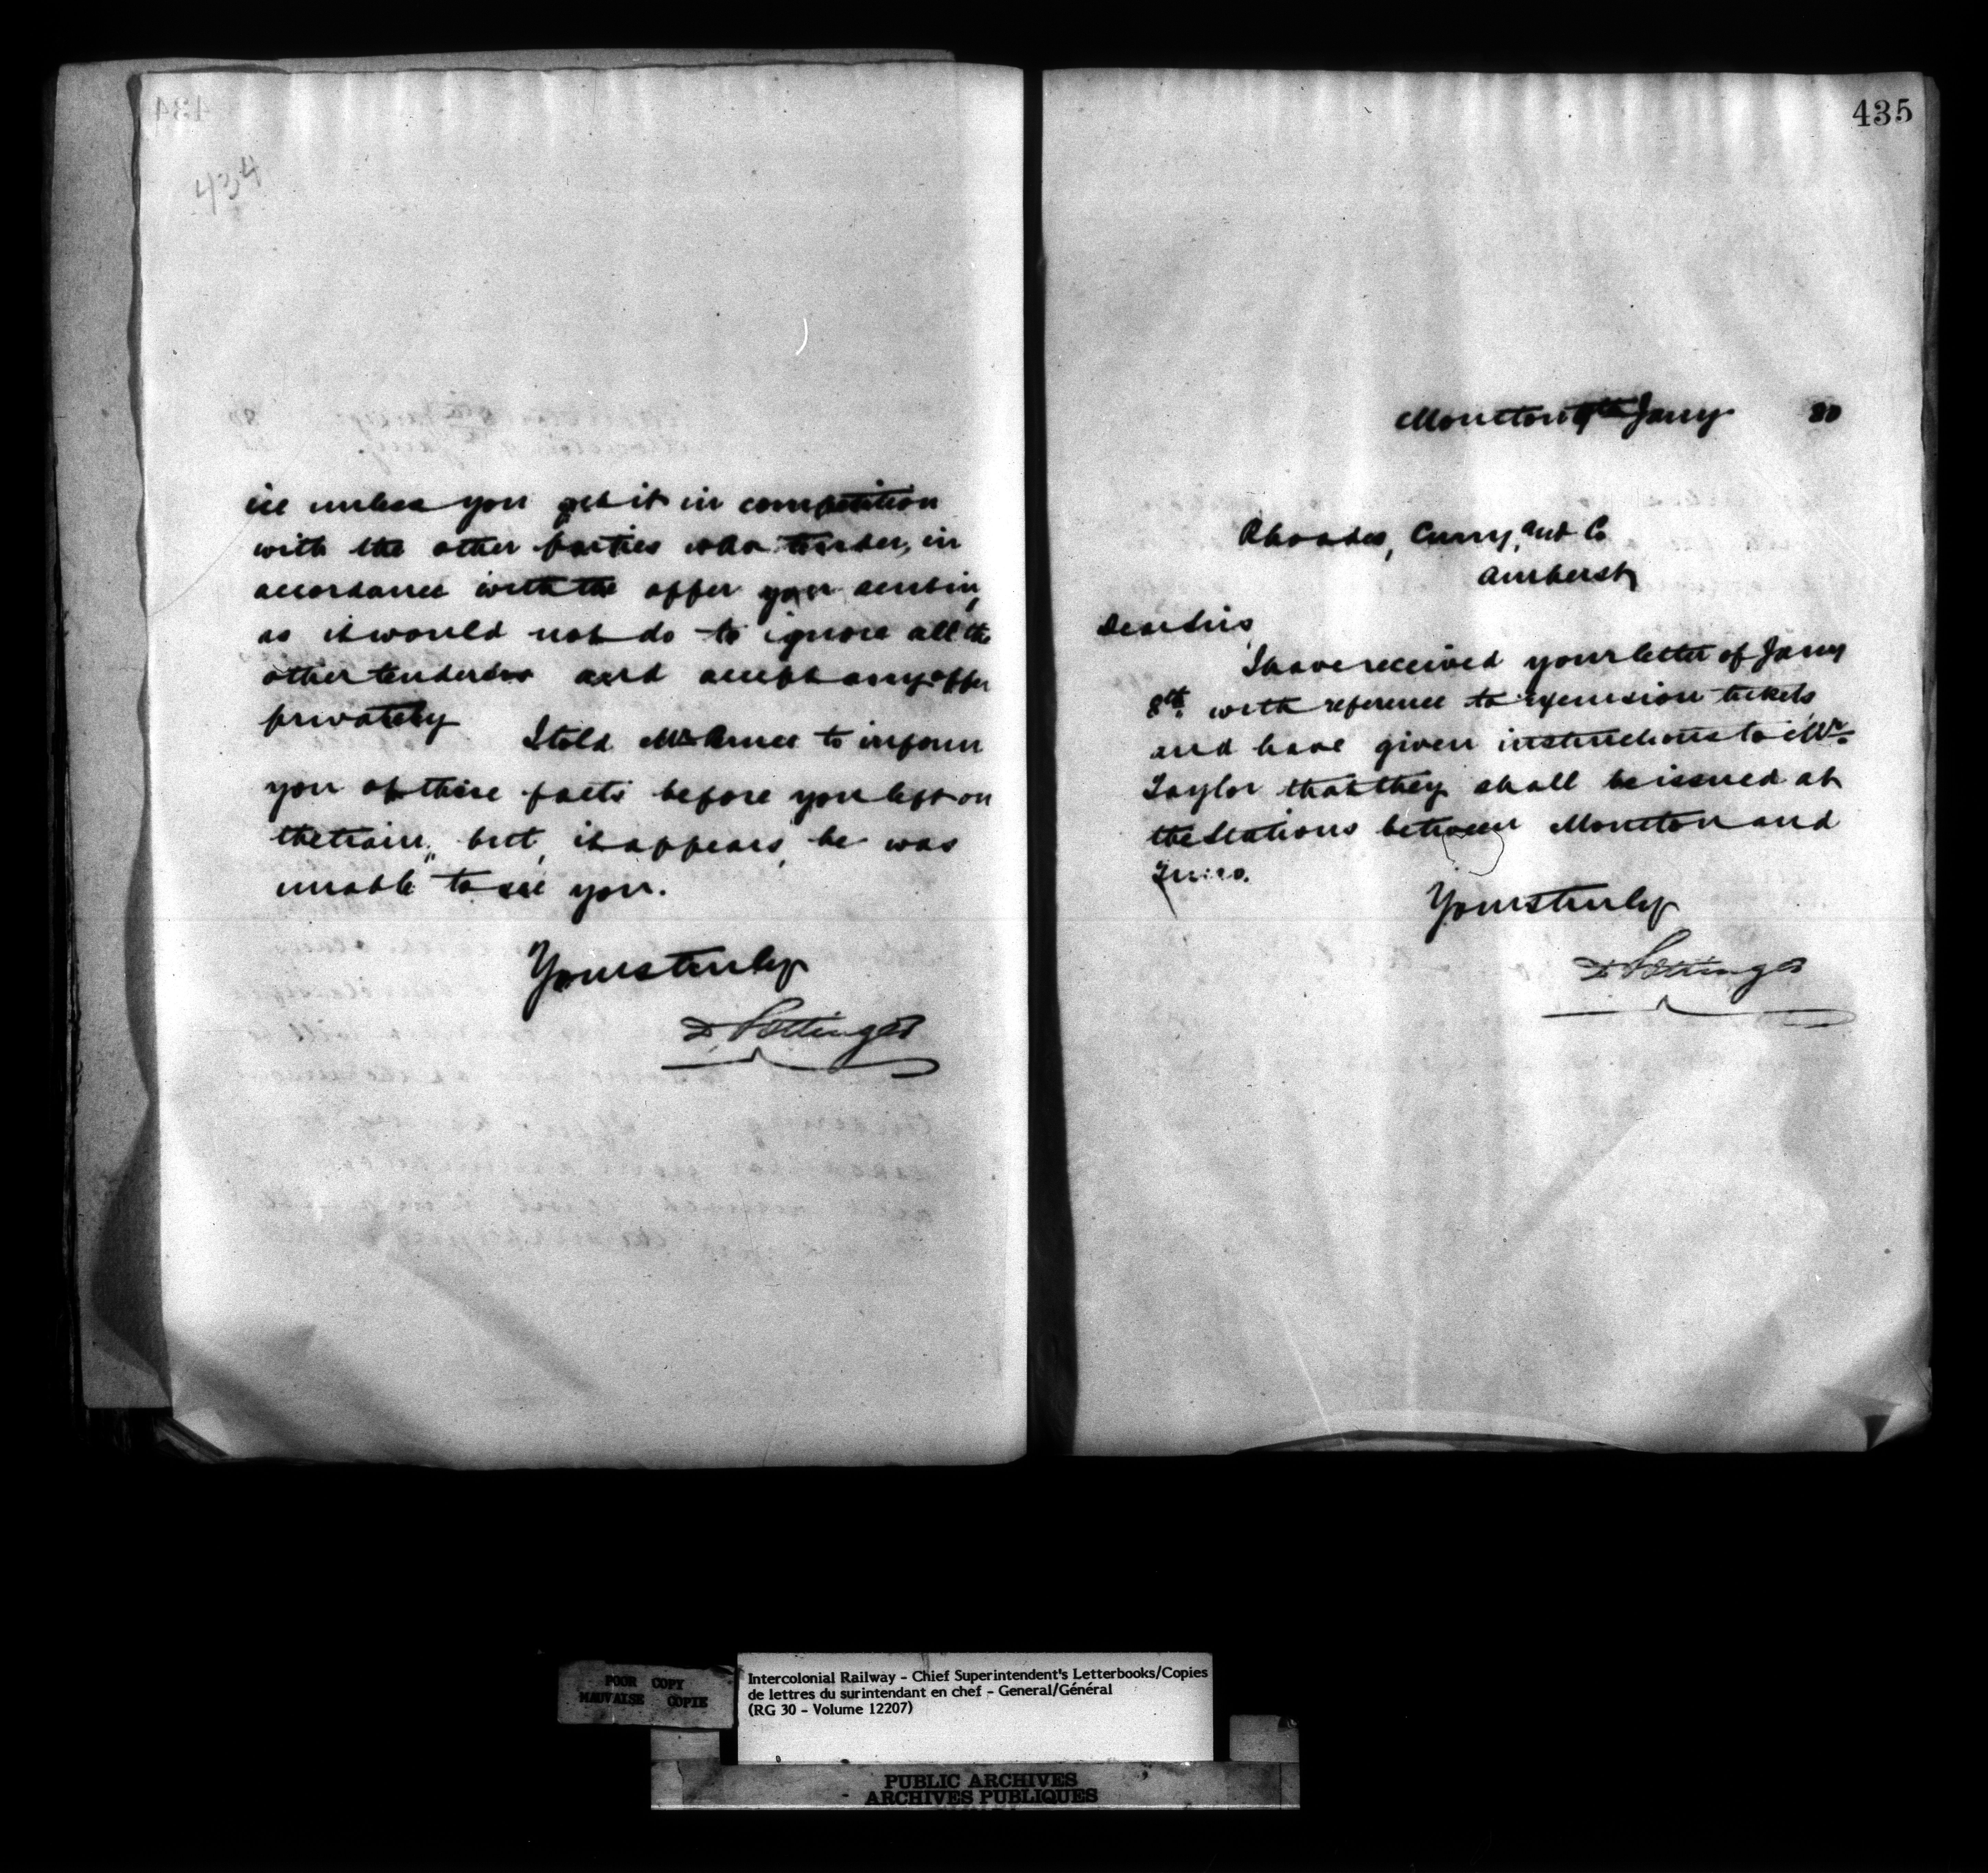 434
ice unless you get it in competition
with the other parties who tender, in
accordance with the offer you sent in,
as it would not do to ignore all the
other tenders and accept any offer
privately
I told Mr to inform
you of these facts before you left on
the train, but, it appears, he was
unable to see you.
Yours truly
D Pottinger
435
Moncton 9th Jany 80
Rhodes, Curry, and Co
Amherst
Dear Sirs
I have received your letter of Jany
8th. with reference to excursion tickets
and have given instructions to Mr
Taylor that they shall be issued at
the Stations between Moncton and
Truro.
Yours truly
D Pottinger
POOR COPY
MAUVAISE COPIE
Intercolonial Railway - Chief Superintendent's Letterbooks/Copies
de lettres du surintendant en chef - General/Général
(RG 30 - Volume 12207)
PUBLIC ARCHIVES
ARCHIVES PUBLIQUES